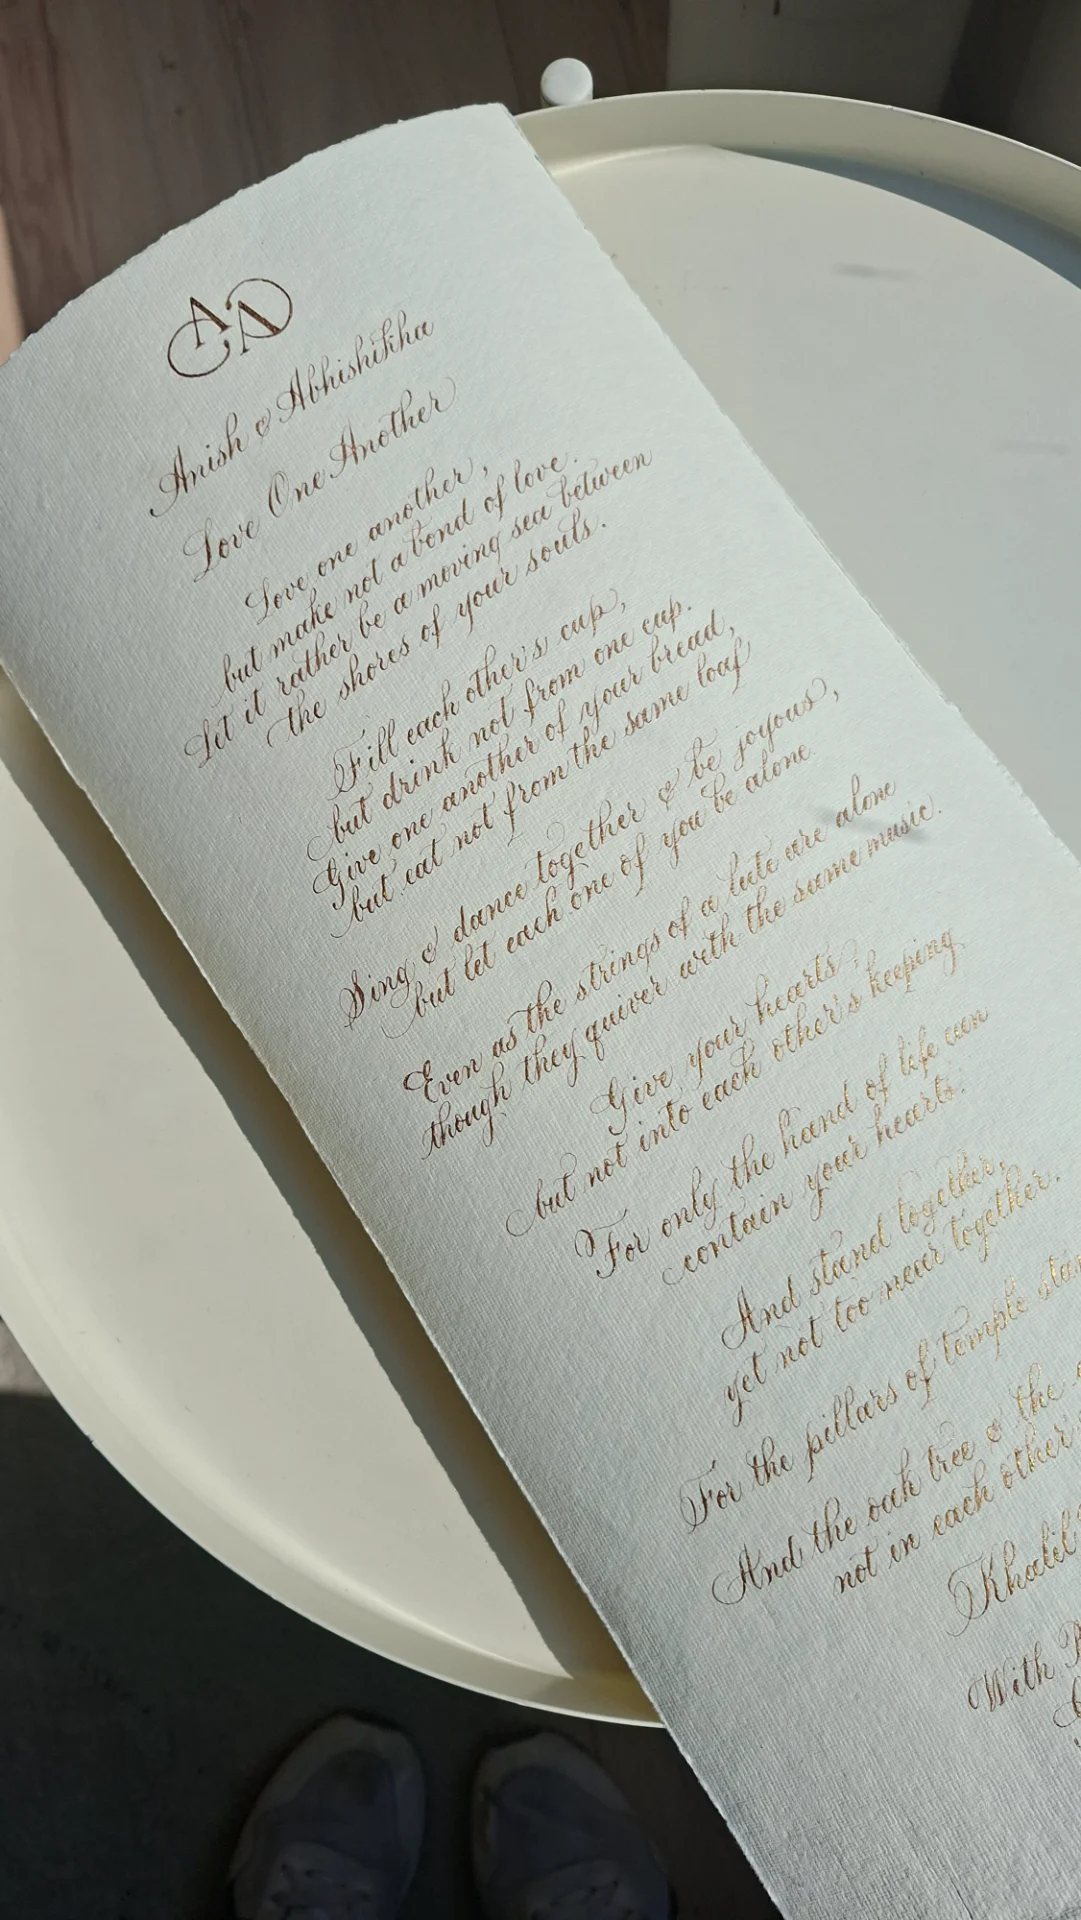 AA
Anish & Abhishikha
Love One Another
Love one another,
but make not a bond of love.
Let it rather be a moving sea between
the shores of your souls.
Fill each other's cup,
but drink not from one cup.
Give one another of your bread,
but eat not from the same loaf
Sing & dance together & be joyous,
but let each one of you be alone
Even as the strings of a lute are alone
though they quiver with the same music.
Give your hearts,
but not into each other's keeping
For only the hand of life can
contain your hearts.
And stand together,
yet not too near together.
For the pillars of temple
And the oak tree & the
not in each other
Khalil
With